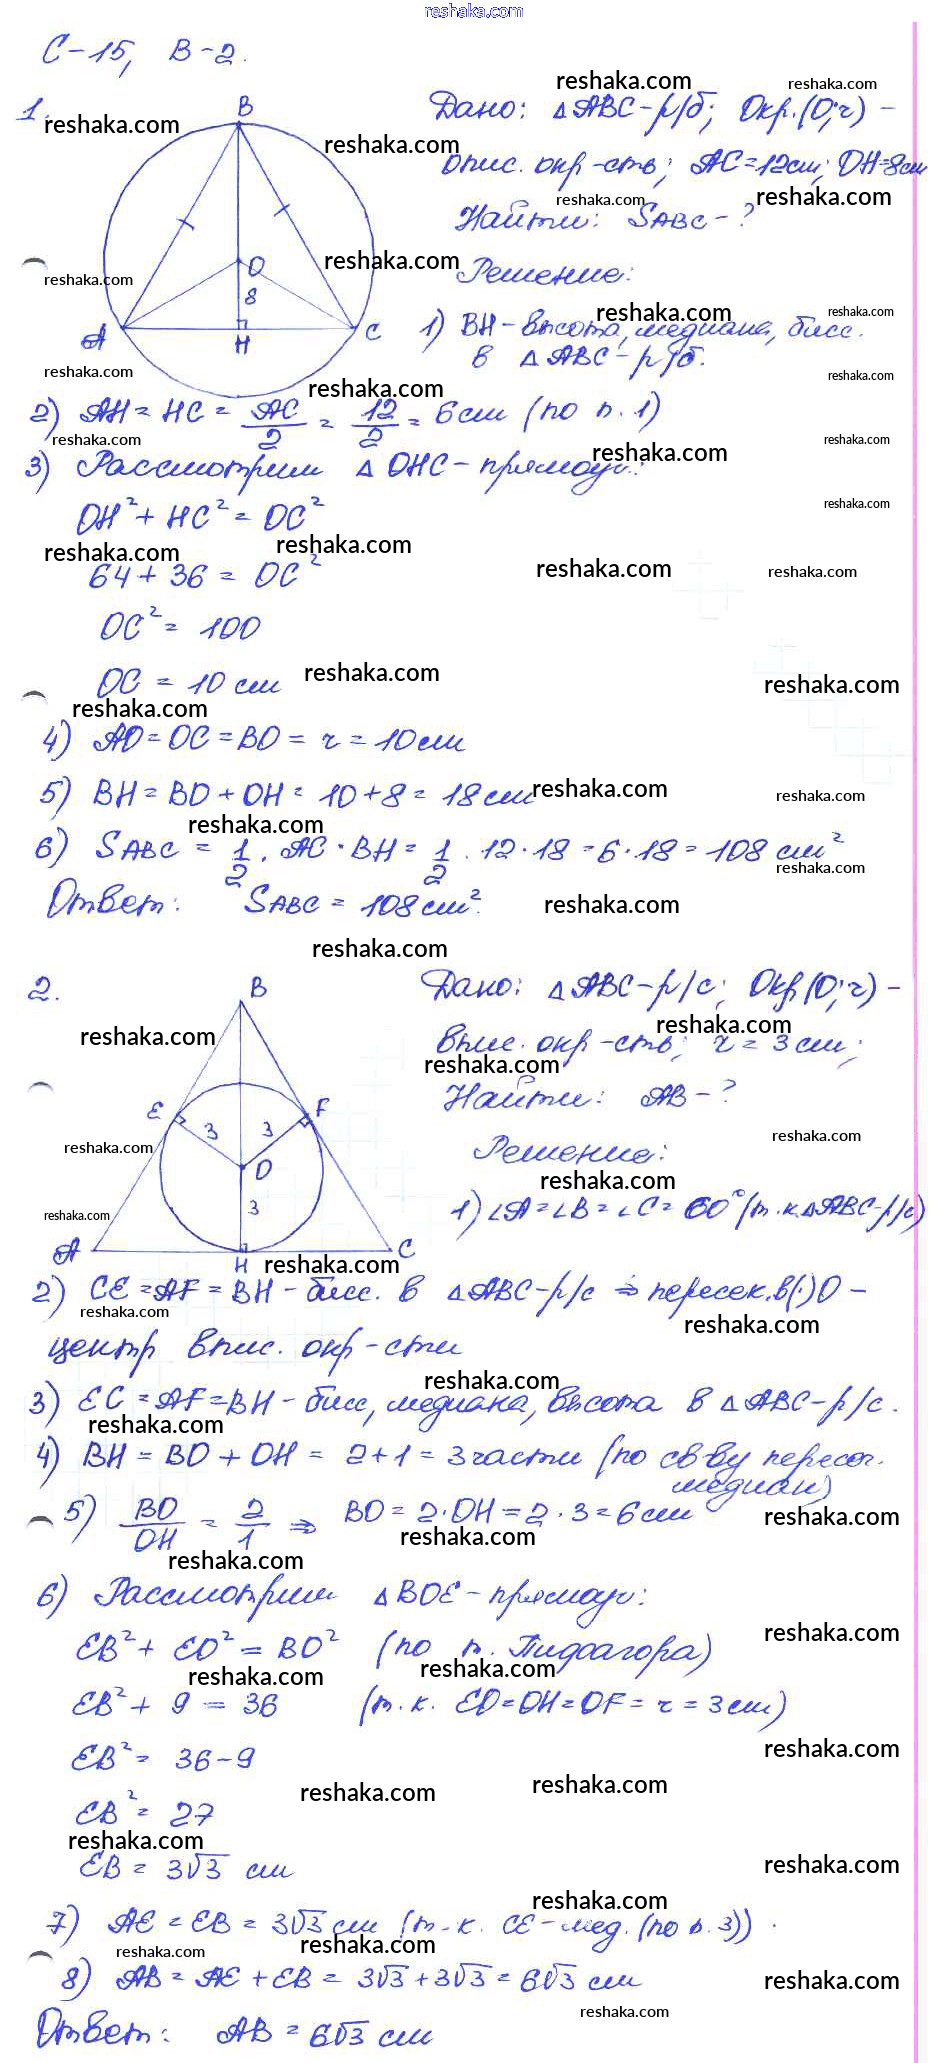 reshaka.com
С-15, В-2.
1.
B
O
8
A
H
C
Дано: △ABC-р/б; Окр.(O;r) -
опис. окр-сть; AC=12см; OH=8см
Найти: SABC-?
Решение:
1) BH-высота, медиана, бисс.
в △ABC-р/б.
2) AH = HC = AC/2 = 12/2 = 6см (по п.1)
3) Рассмотрим △OHC-прямоуг.:
OH² + HC² = OC²
64 + 36 = OC²
OC² = 100
OC = 10 см
4) AO = OC = BO = r = 10см
5) BH = BO + OH = 10+8 = 18см
6) SABC = 1/2 · AC · BH = 1/2 · 12·18 = 6·18 = 108 см²
Ответ: SABC = 108см².
2.
B
E
F
3
3
O
3
A
H
C
Дано: △ABC-р/с; Окр(O;r) -
впис. окр-сть; r = 3см;
Найти: AB-?
Решение:
1) ∠A = ∠B = ∠C = 60° (т.к. △ABC-р/с)
2) CE = AF = BH - бисс. в △ABC-р/с ⇒ пересек. в (·) O -
центр впис. окр-сти
3) EC = AF = BH - бисс, медиана, высота в △ABC-р/с.
4) BH = BO + OH = 2+1 = 3части (по св-ву пересеч.
медиан)
5) BO/OH = 2/1 ⇒ BO = 2·OH = 2·3 = 6см
6) Рассмотрим △BOE-прямоуг:
EB² + EO² = BO² (по т. Пифагора)
EB² + 9 = 36 (т.к. EO=OH=OF=r=3см)
EB² = 36-9
EB² = 27
EB = 3√3 см
7) AE = EB = 3√3 см (т-к. CE-мед. (по п.3)) .
8) AB = AE + EB = 3√3 + 3√3 = 6√3 см
Ответ: AB = 6√3 см